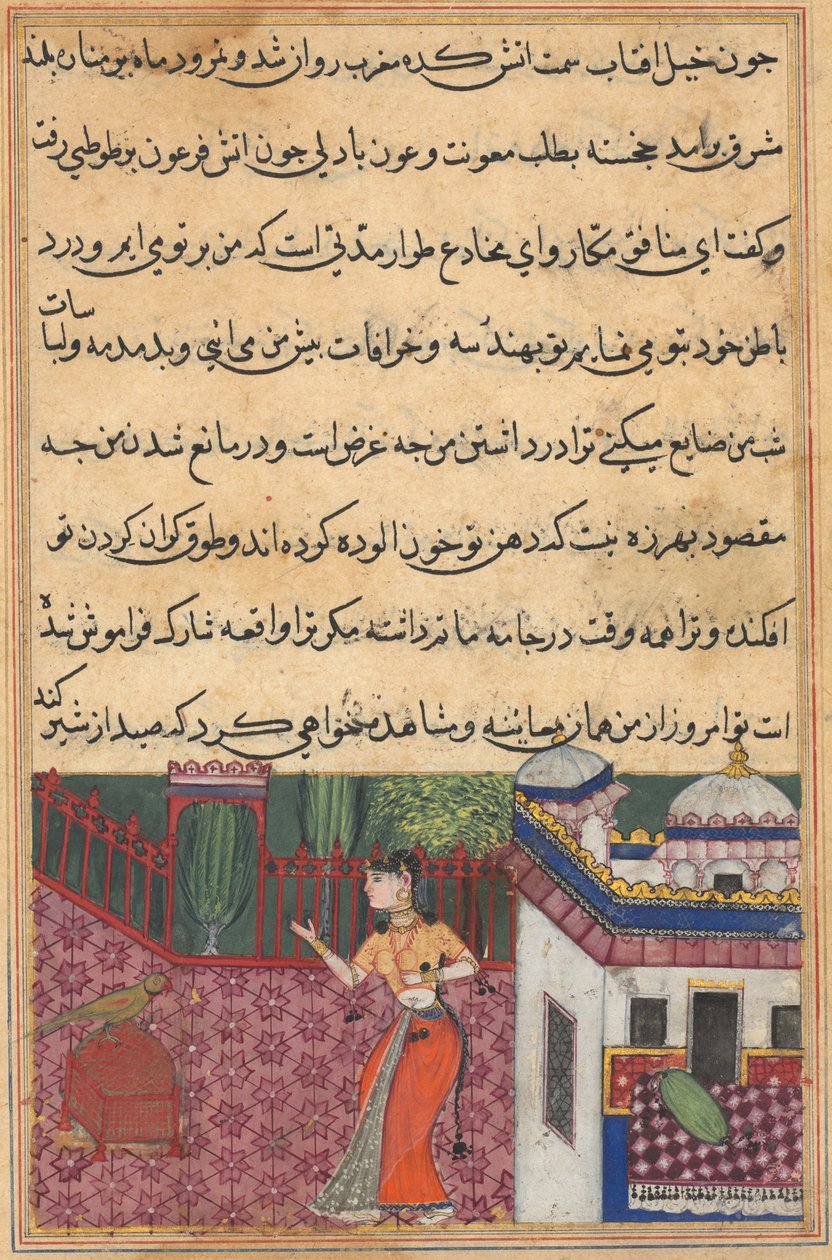 جون خيل افتاب سمت اتش كده مغرب روان شد و نمرود ماه بر مناره بلند
مشرق برامد خجسته بطلب معونت و عون بادلي جون اتش فرعون بر طوطي رفت
و كفت اي منافق مكار و اي مخادع طرار مدتي است كه من بر تو مي ايم و درد
باطن خود بتو مي نمايم تو بهندسه و خرافات پيش من مي ائي و بدمدمه ولباسات
شب من ضايع ميكني ترا در داشتن من جه غرض است و در مانع شدن من جه
مقصود بهرزه نيست كه دهن تو خون الوده كرده اند و طوق كران كردن تو
افكنده و ترا همه وقت در جامه ماتم داشته مكر ترا واقعه شارك فراموش شده
است تو امروز از من همان معاينه و مشاهده خواهي كرد كه صيد از شير كند